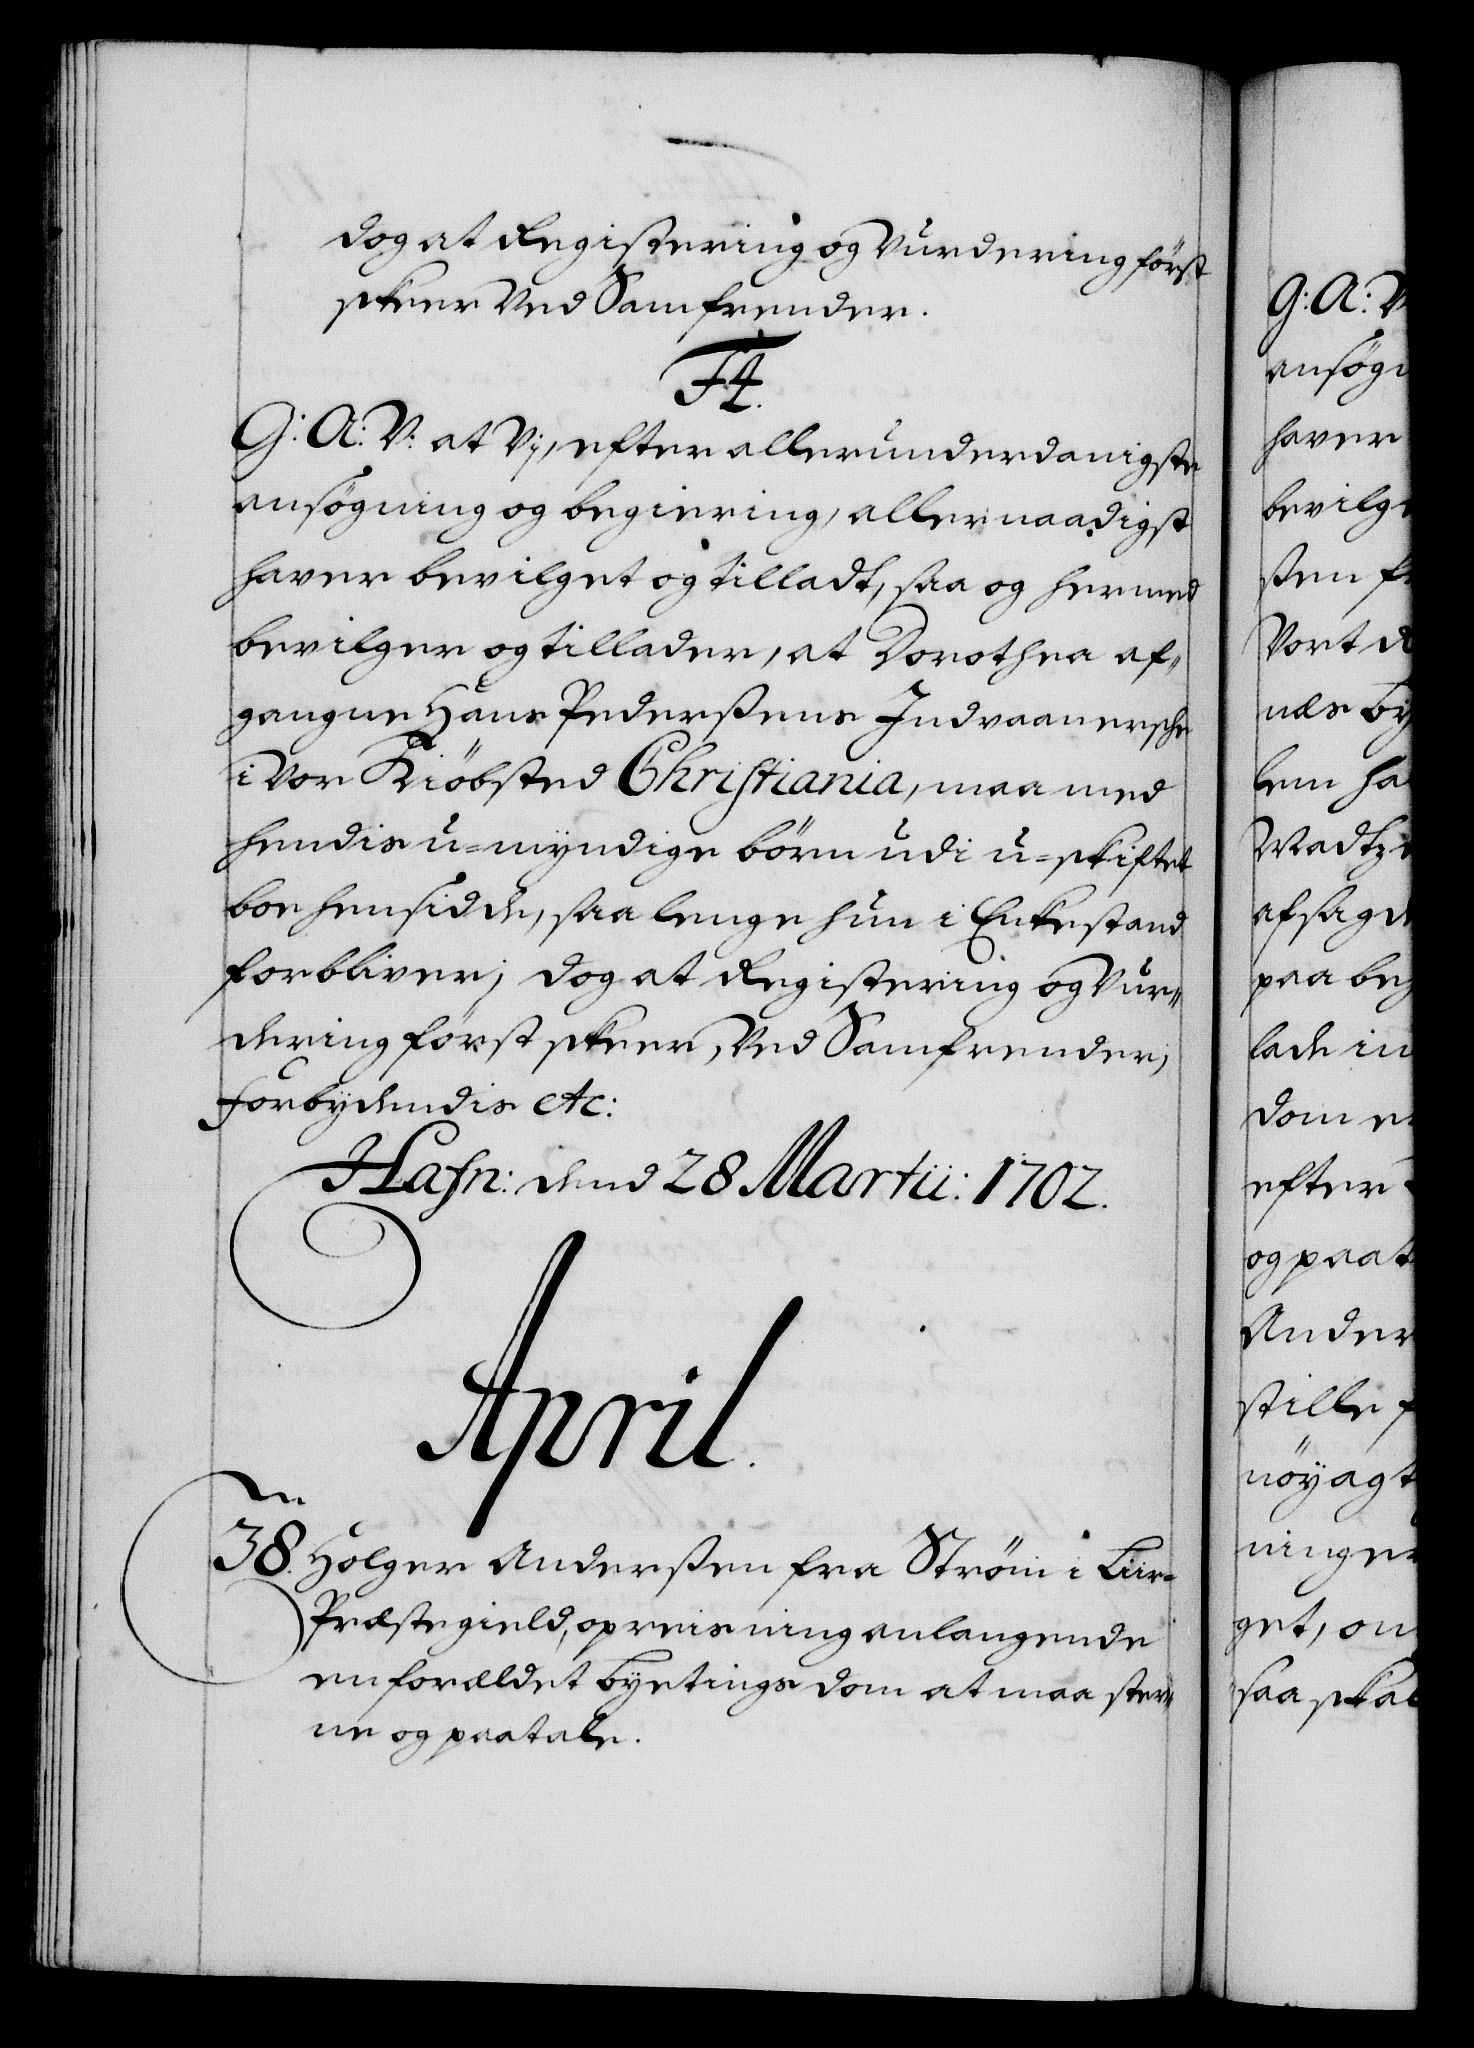 dog at Registering og Vurdering först
skeer Ved Samfrender.
F4.
G: A: V: at Vj, efter allerunderdanigste
ansögning og begiering, allernaadigst
haver bevilget og tilladt, saa og hermed
bevilger og tillader, at Dorothea af,,
gangne Hans Pederssens Indvaanersche
i Vor Kiöbsted Christiania, maa med
hendis u=myndige börn udi u=skiftet
boe hensidde, saa lenge hun i Enkestand
forbliver; dog at Registering og Vur,,
dering först skeer, Ved Samfrender,
Forbydendis etc:
Hafn: dend 28 Martii: 1702.
April.
38. Holger Anderssen fra Ström i
Præstegield, opreisning anlangende
en forældet byetings dom at maa stev,,
ne og paatale.
G: A: V
ansögn
haver
bevilge
sten f
Vort
næs by
lem ha
afsagde
paa beg
lade in
dom e
efter
og paat
Ander
stille f
nöyagt
ninger
get, om
saa skal